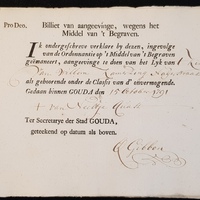 Pro Deo. Billiet van aangeevinge, wegens het
Middel van 't Begraven.
IK ondergeschreve verklare by dezen, ingevolge
van de Ordonnantie op 't Middel van 't Begraven
geëmaneert, aangeevinge te doen van het Lyk van
van Willem
als gehoorende onder de Classis van d' onvermogende.
Gedaan binnen GOUDA den 15 October
Ter Secretarye der Stad GOUDA,
geteekend op datum als boven.